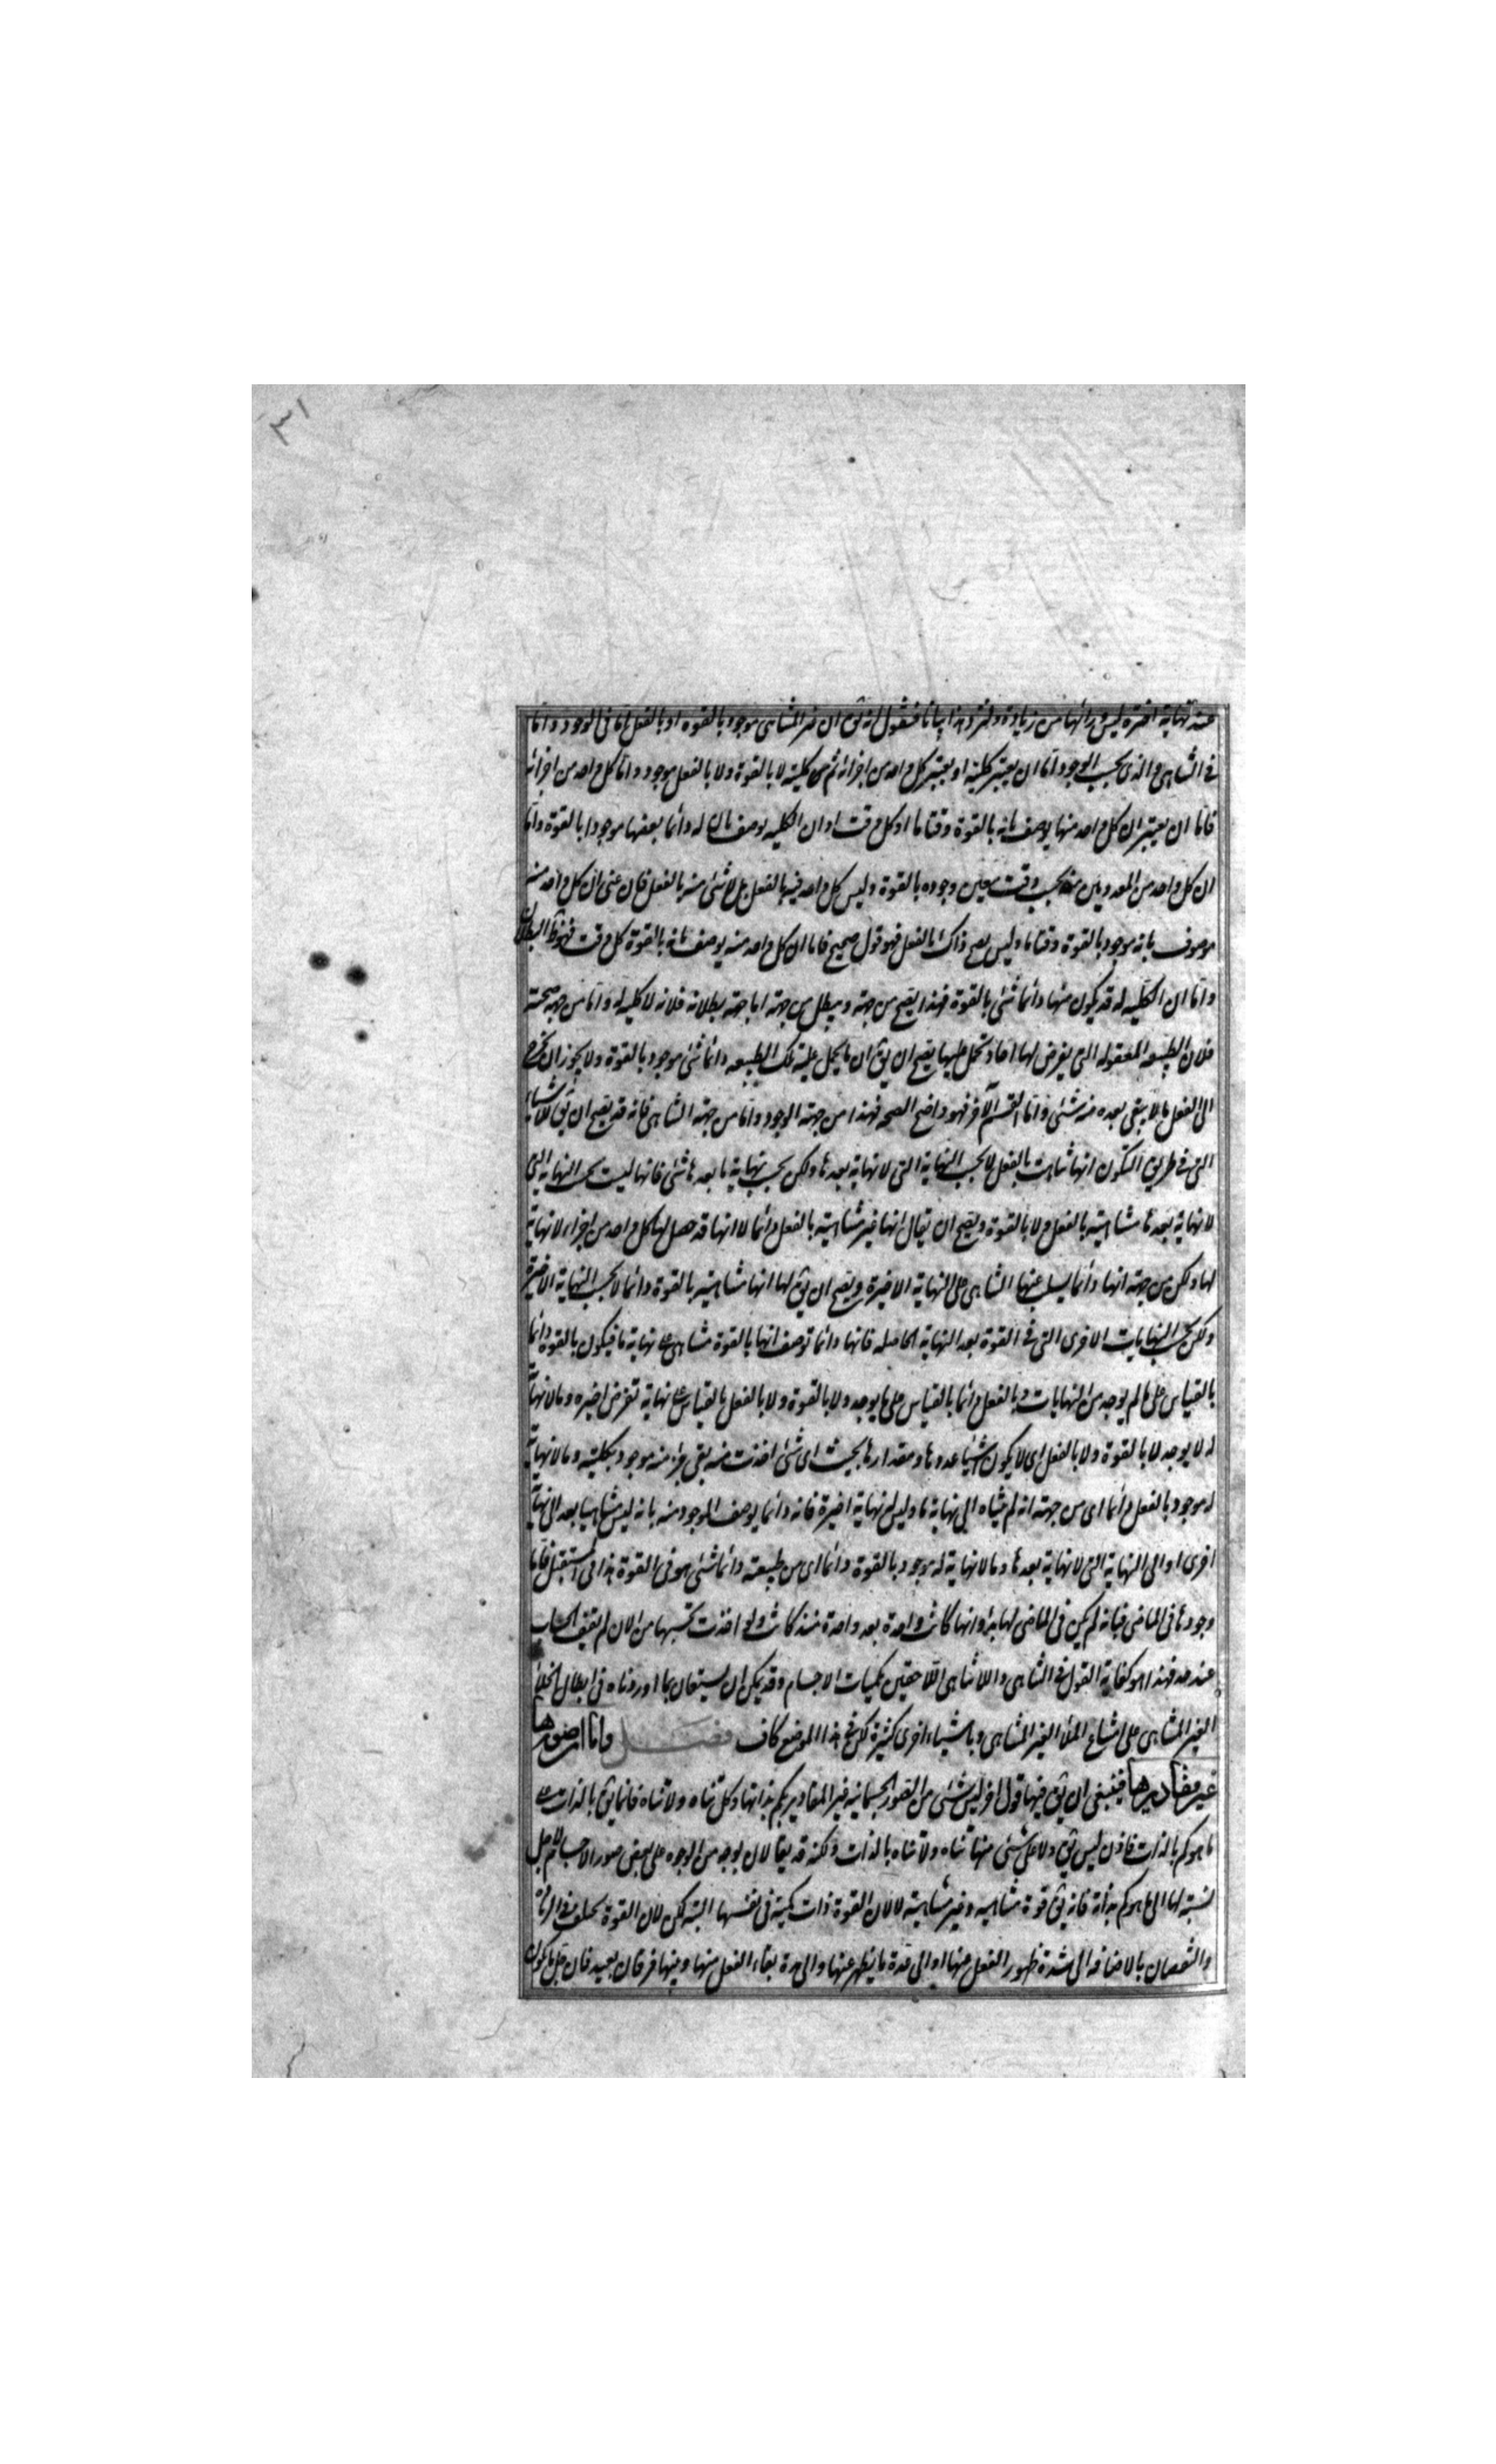 ٣١
عند نهاية اخيرة ليس وراءها من زيادة ولنزد هذا بيانا فنقول انه يق ان غير المتناهى موجود بالقوة او بالفعل اما فى الوجود واما
فى التناهى والذى بحسب الوجود اما ان يعتبر كليته او يعتبر كل واحد من اجزائه ثم كليته لا بالقوة ولا بالفعل موجود واما كل واحد من اجزائه
فاما ان يعتبر ان كل واحد منها يوصف بانه بالقوة وقتا ما او كل وقت او ان الكلية يوصف بان له دائما بعضها موجودا بالقوة واما
ان كل واحد من المعدومين منه بحسب وقت معين وجوده بالقوة وليس كل واحد فيه بالفعل بل لا شئ منه بالفعل فان عنى ان كل واحد منه
موصوف بانه موجود بالقوة وقتا ما وليس يصح ذاك بالفعل فهو قول صحيح فاما ان كل واحد منه يوصف بانه بالقوة كل وقت فهو ظ البطلان
واما ان الكلية له قد يكون منها دائما شئ بالقوة فهذا يصح من جهة ويبطل من جهة اما جهة بطلانه فلانه لا كلية له واما من جهة صحته
فلان الطبيعة المعقولة التى يفرض لها احاد تحمل عليها يصح ان يق ان ما يحمل عليه تلك الطبيعة دائما شئ موجود بالقوة ولا يجوز ان يخرج
الى الفعل ما لا يبقى بعده منه شئ واما القسم الآخر فهو واضح الصحه فهذا من جهة الوجود واما من جهة التناهى فانه قد يصح ان يق للاشياء
التى فى طريق التكون انها تناهت بالفعل لا بحسب النهاية التى لا نهاية بعدها ولكن بحسب نهاية ما بعدها شئ فانها ليست بحسب النهاية التى
لا نهاية بعدها متناهية بالفعل ولا بالقوة ويصح ان يقال انها غير متناهية بالفعل دائما لا انها قد حصل لها كل واحد من اجزاء لا نهاية
لها ولكن من جهة انها دائما يسلب عنها التناهى على النهاية الاخيرة ويصح ان يق لها انها متناهية بالقوة دائما لا بحسب النهاية الاخيرة
ولكن بحسب النهايات الاخرى التى فى القوة بعد النهاية الحاصله فانها دائما توصف انها بالقوة متناهى نهاية ما فيكون بالقوة دائما
بالقياس على ما لم يوجد من النهايات وبالفعل دائما بالقياس على ما يوجد ولا بالقوة ولا بالفعل بالقياس نهاية تفرض اخيره وما لا نهاية
له لا يوجد لا بالقوة ولا بالفعل اى لا يكون اشياء عددها ومقدارها بحيث اى شئ اخذت منه بقى جزء منه موجود بكليته وما لا نهاية
له موجود بالفعل دائما اى من جهة انه لم يتناه الى نهاية ما وليس نهاية اخيرة فانه دائما يوصف الموجود منه بانه ليس متناهيا بعد الى نهاية
اخرى او الى النهاية التى لا نهاية بعدها وما لا نهاية له موجود بالقوة دائما اى من طبيعته دائما شئ هو فى القوة هذا فى المستقبل فاما
وجودها فى الماضى فبانه لم يكن فى الماضى لها بدء وانها كانت واحدة بعد واحدة منذ كانت ولو اخذت تحسبها من الان لم تقف الحساب
عند حد فهذا هو كفاية القول فى التناهى واللا تناهى اللاحقين بكميات الاجسام وقد يمكن ان يستعان بما اوردناه فى ابطال الخلاء
الغير المتناهى على امتناع الملأ الغير المتناهى وباشياء اخرى كثيرة لكن فى هذا الموضع كاف فصل واما ان صورها
غير مقاديرها فينبغى ان يق فيها قول اخر ليس شئ من الصور الجسمانية غير المقادير بكم بذاتها وكل تناه ولا تناه فانما يق بالذات
ما هو كم بالذات فاذن ليس يق ولا على شئ منها تناه ولا تناه بالذات ولكنه قد يقال بوجه من الوجوه على بعض صور الاجسام لاجل
نسبة لها الى ما هو كم بذاته فانه يق قوة متناهيه وغير متناهية لا لان القوة ذات كمية فى نفسها البتة لكن لان القوة يختلف فى الزيادة
والنقصان بالاضافه الى شدة ظهور الفعل منها او الى عدة ما يظهر عنها والى مدة بقاء الفعل منها وبينها فرقان بعيد فان جل ما يكون